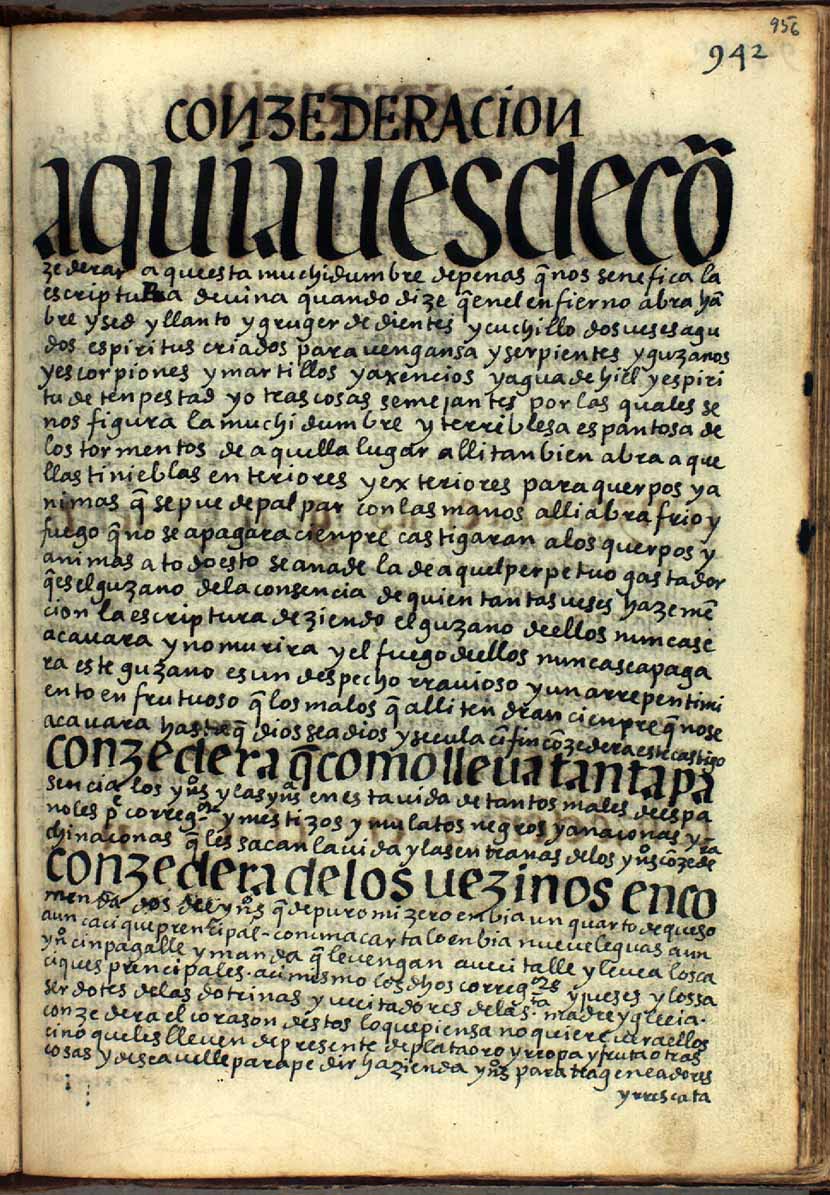 956
942
CONZEDERACION
aquiauesdecõ
zederar a queesta muchidumbre depenas q̃ nos senefica la
escriptura deuina quando dize q̃ enel enfierno abra hã
bre y sed y llanto y gruger de dientes y cuchillo dos ueses agu
dos espiritus criados para uengansa y serpientes y guzanos
y escorpiones y martillos y axencios y agua de hiel y espiri
tu de tenpestad y otras cosas semejantes por las quales se
nos figura la muchidumbre y terriblesa espantosa de
los tormentos de aquella lugar alli tanbien abra aque
llas tinieblas enteriores y exteriores para querpos y a
nimas q̃ se puede palpar con las manos alli abra frio y
fuego q̃ no se apagara cienpre castigaran a los querpos y
animas a todo esto se anade la de aquel perpetuo gastador
q̃ es el guzano de la consencia de quien tantas ueses haze mẽ
cion la escriptura deziendo el guzano dellos nuncase
acauara y no murira y el fuego dellos nunca se apaga
ra este guzano es un despecho rrauioso y un arrepentimi
ento en frutuoso q̃ los malos q̃ alli tendran cienpre q̃ nose
acauara hasta q̃ dios sea dios y secula cĩ fin cõzedera este castigo
conzedera q̃ como lleua tanta pa
sencia los yn̄os y las yn̄as en esta uida de tantos males de espa
noles pe correg.or y mestizos y mulatos negros yanaconas y
chinaconas q̃ les sacan la uida y las entranas de los yn̄os cõzede ra
conzedera de los uezinos enco
menderos de yn̄os q̃ de puro mizero enbia un quarto de queso
a un cacique prencipal con una carta lo enbia nueue leguas a un
yn̄o cin pagalle y manda q̃ le uengan a uecitalle y lleua los ca
ciques prencipales acimesmo los dhos correg.ores y jueses y los sa
serdotes de las dotrinas y uecitadores de la s.ta madre yglecia
conzedera el corason destos lo que piensa no quiere uer a ellos
cino que les lleuen de presente de plata oro y rropa y fruta otras
cosas y desea uelle para pedir hazienda yn̄os para trageneadores
y rrescata